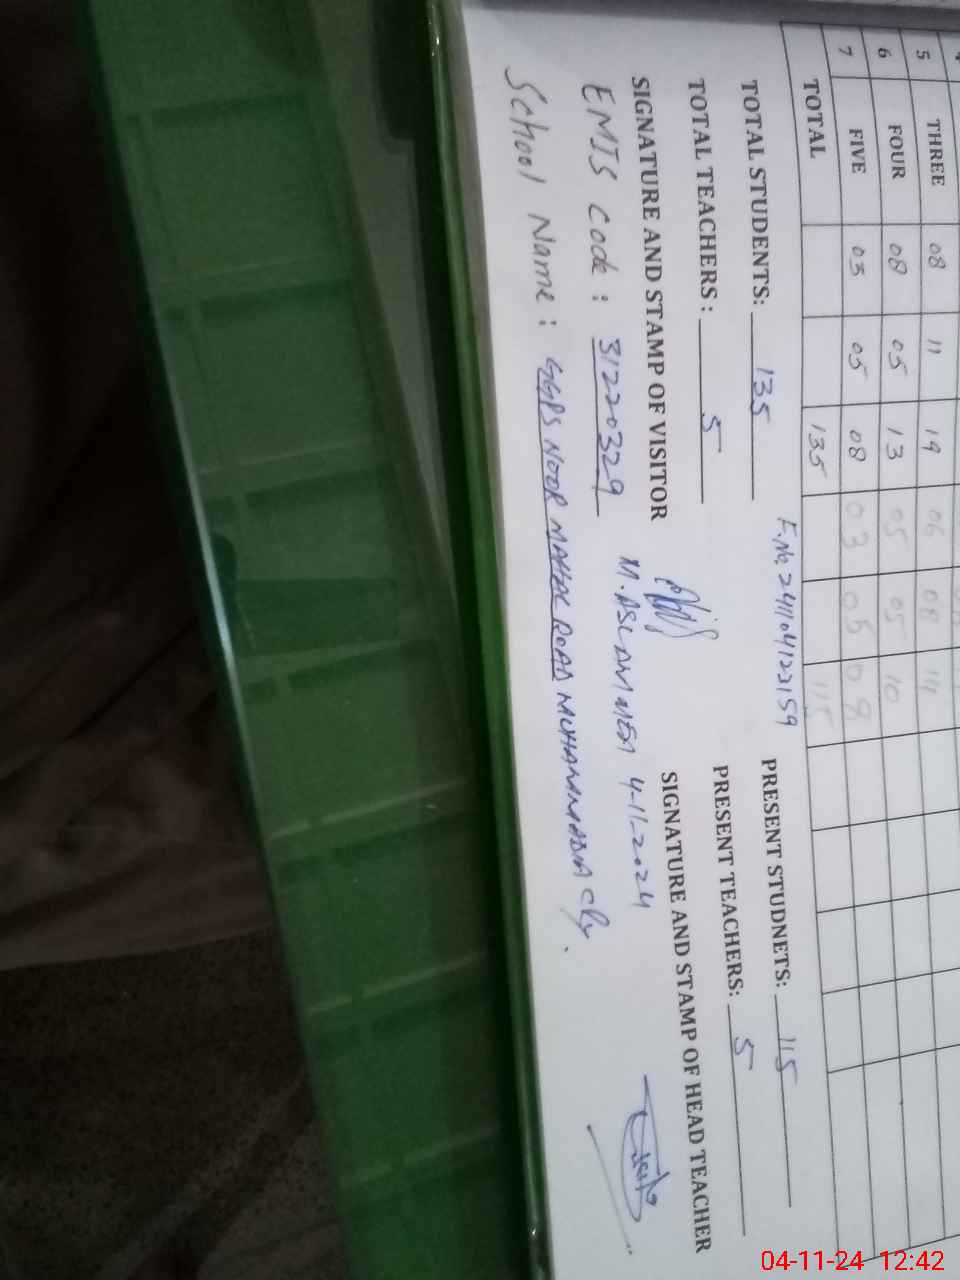 5 THREE 08 11 19 06 08
6 FOUR 08 05 13 05 05 10
7 FIVE 03 05 08 03 05 08
TOTAL 135 115
F.No. 241104122159
TOTAL STUDENTS: 135 PRESENT STUDNETS: 115
TOTAL TEACHERS : 5 PRESENT TEACHERS: 5
SIGNATURE AND STAMP OF VISITOR SIGNATURE AND STAMP OF HEAD TEACHER
M. ASLAM MEA 4-11-2024
EMIS Code : 31220329
School Name : GGPS NOOR MAHAL ROAD MUHAMMADIA Cly.
04-11-24 12:42